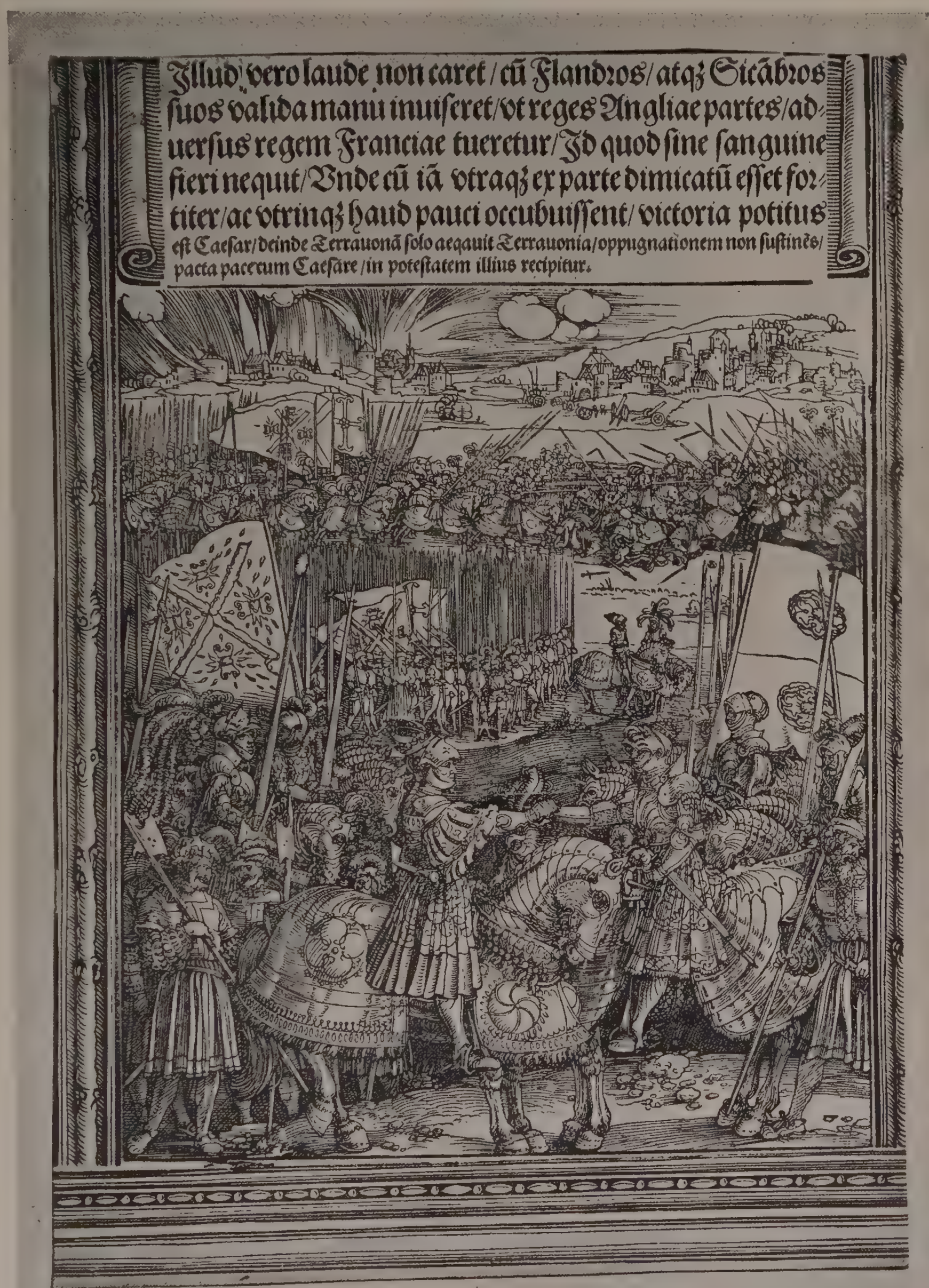 Illud vero laude non caret / cū Flandros / atqꝫ Sicābros
suos valida manu inuiseret / vt reges Angliae partes / ad⸗
uersus regem Franciae tueretur / Id quod sine sanguine
fieri nequit / Vnde cū iā vtraqꝫ ex parte dimicatū esset for⸗
titer / ac vtrinqꝫ haud pauci occubuissent / victoria potitus
est Caesar / deinde Terrauonā solo aeqauit Terrauonia / oppugnationem non sustinēs /
pacta pace cum Caesare / in potestatem illius recipitur.